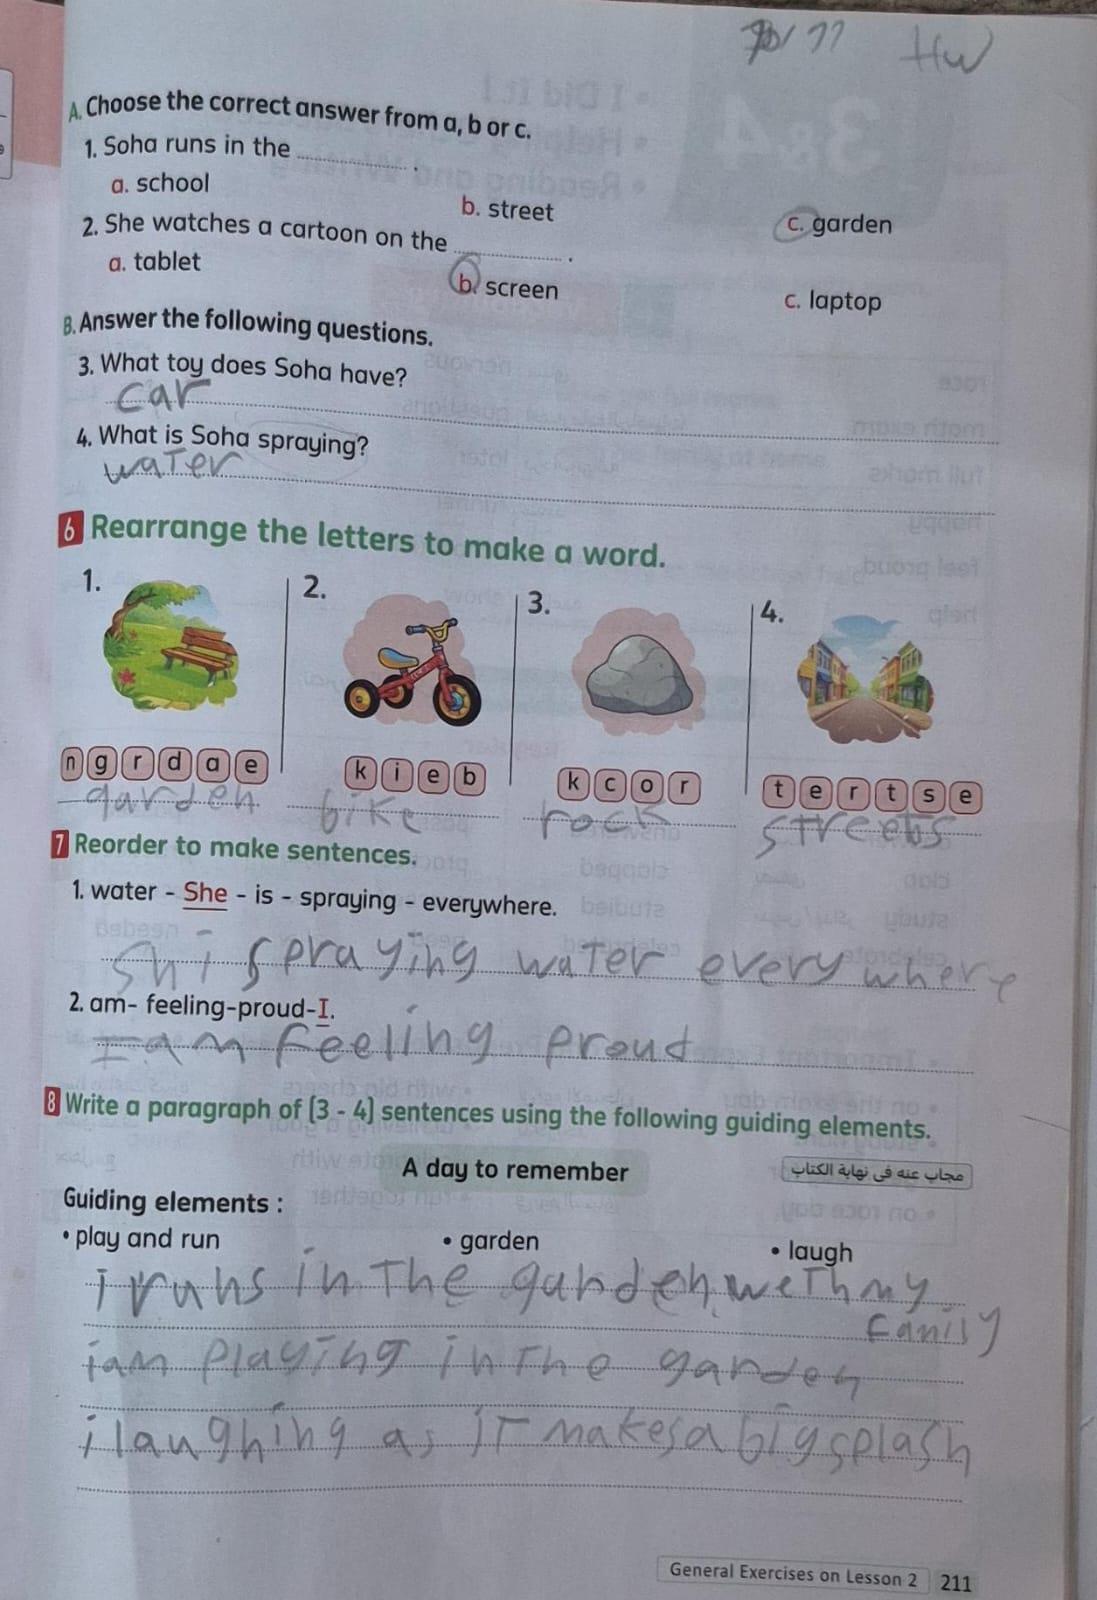 HW
A. Choose the correct answer from a, b or c.
1. Soha runs in the ............ .
a. school b. street c. garden
2. She watches a cartoon on the ............ .
a. tablet b. screen c. laptop
B. Answer the following questions.
3. What toy does Soha have?
car
4. What is Soha spraying?
water
6 Rearrange the letters to make a word.
1. 2. 3. 4.
n g r d a e k i e b k c o r t e r t s e
garden bike rock streets
7 Reorder to make sentences.
1. water - She - is - spraying - everywhere.
Sh i spraying water everywhere
2. am- feeling-proud-I.
I am feeling proud
8 Write a paragraph of (3 - 4) sentences using the following guiding elements.
A day to remember
مجاب عنه فى نهاية الكتاب
Guiding elements :
• play and run • garden • laugh
i runs in the garden weth my
family
i am playing in the garden
i laughing as it makes a big splash
General Exercises on Lesson 2 211